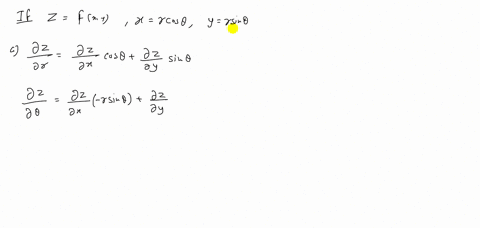 If Z = f(x,y) , x = rcosθ, y = rsinθ
c) ∂z/∂r = ∂z/∂x cosθ + ∂z/∂y sinθ
∂z/∂θ = ∂z/∂x (-rsinθ) + ∂z/∂y